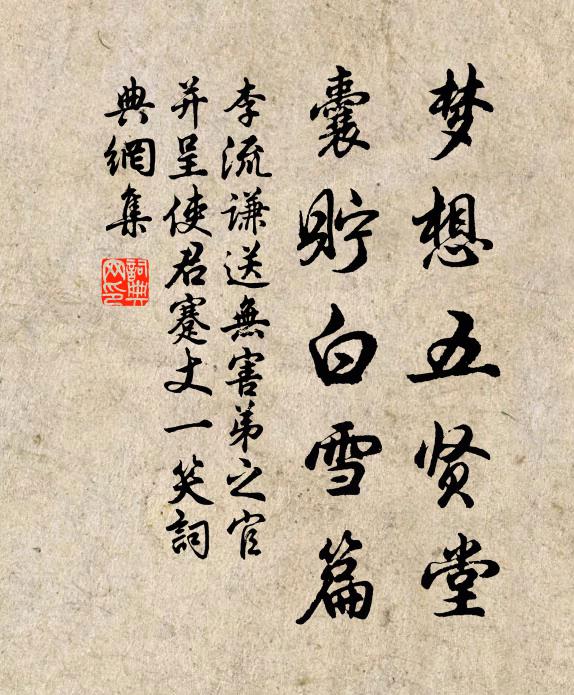 梦想五贤堂
囊贮白雪篇
李流谦送無害弟之官
并呈使君蹇丈一笑詞
典網集
詞典網印